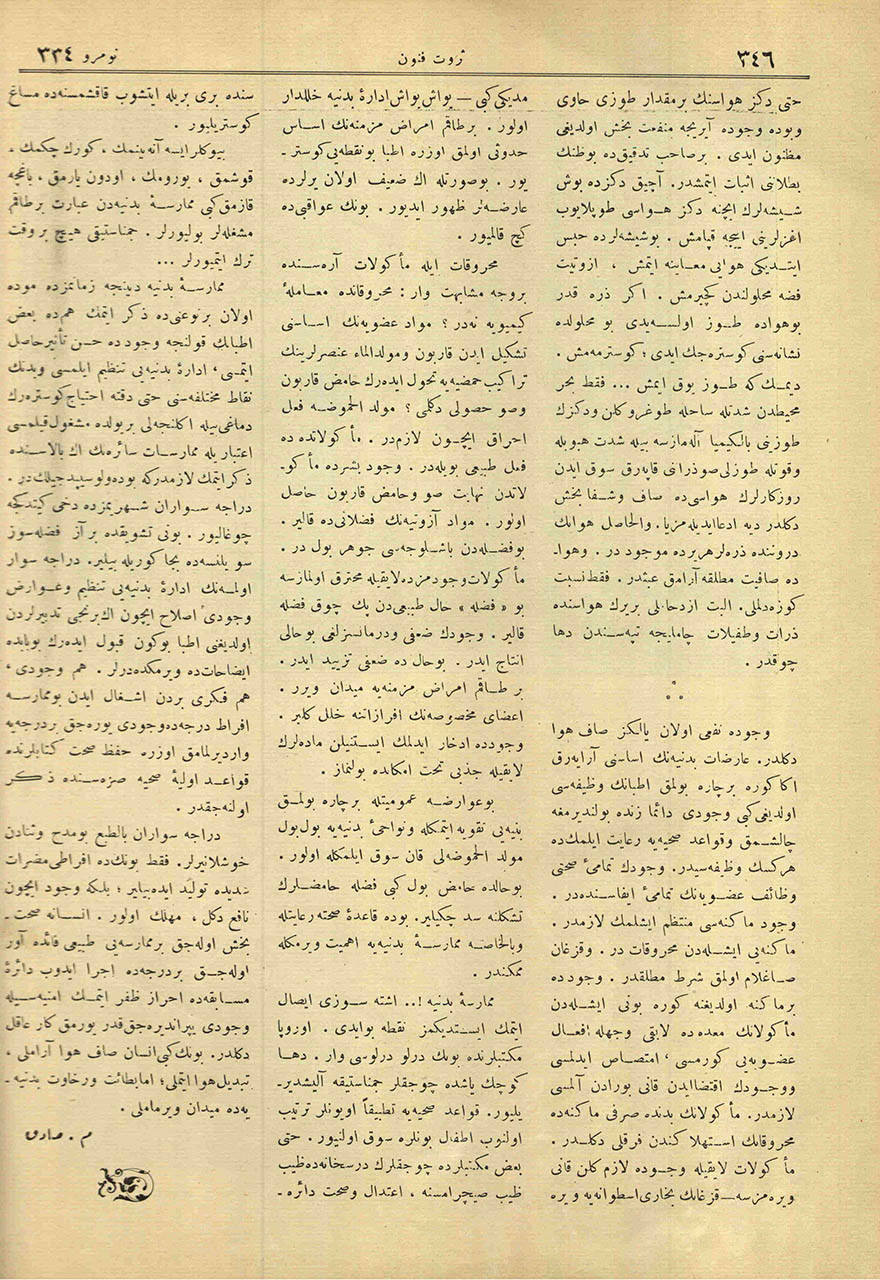 ٣٤٦
ثروت فنون
نومرو ٣٣٤
حتی دكز هواسنك برمقدار طوزی حاوی
وبوده وجوده آیریجه منفعت بخش اولدیغی
مظنون ایدی . برصاحب تدقیق ده بوظنك
بطلاننی اثبات ایتمشدر. آچیق دكزده بوش
شیشه‌لرك ایچنه دكز هواسی طوپلایوب
اغزلرینی اییجه قپامش . بوشیشه‌لرده حبس
ایتدیكی هوایی معاینه ایتمش ، ازوتیت
فضه محلولندن كچیرمش . اكر ذره قدر
بوهواده طوز اولسه‌یدی بو محلولده
نشانه‌سنی كوستره‌جك ایدی؛ كوسترمه‌مش .
دیمـك كه طـوز یوق ایمش ... فقط بحر
محیطدن شدتله ساحله طوغرو كلن ودكزك
طوزینی بالكیمیا آله‌مازسه بیله شدت هبوبله
وقوتله طوزلی صو ذراتی قاپه‌رق سوق ایدن
روزكارلرك هواسی ده صاف وشـفا بخش
دكلدر دیه ادعا ایدیله‌مز یا. والحاصل هوانك
دروننده ذره‌لر هریرده موجود در . وهوا-
ده صافیت مطلقه آرامق عبثدر . فقط نسبت
كوزه‌دلملی. البت ازدحاملی بریرك هواسنده
ذرات وطفیلات چاملیجه تپه‌سـندن دها
چوقدر .
وجوده نفعی اولان یالكز صاف هوا
دكلدر. عارضات بدنیه‌نك اساسنی آرایه‌رق
اكا كوره برچاره بولمق اطبانك وظیفه‌سی
اولدیغی كبی وجودی دائما زنده بولندیرمغه
چالشـمق وقواعد صحیه‌یه رعایت ایلمك ده
هركسك وظیفه‌سیدر. وجودك تمامئ صحتی
وظائف عضویه‌نك تمامئ ایفاسنده‌در .
وجود ماكنه‌سی منتظم ایشلمك لازمدر .
ماكنه‌یی ایشـله‌دن محروقات در . وقزغان
صـاغلام اولمق شرط مطلقدر . وجود ده
برماكنه اولدیغنه كوره بونی ایشـله‌دن
مأكولاتك معده ده لایقی وجهله افعـال
عضـویه‌یی كورمسی ، امتصاص ایدلمسی
ووجـودك اقتضا ایدن قانی بورادن آلمسی
لازمدر. مأكولاتك بدنده صرفی ماكنه‌ده
محروقاتك استهلاكندن فرقلی دكلـدر .
مأكولات لایقیله وجـوده لازم كلن قانی
ویره‌مزسه ــ قزغانك بخاری اسطوانه‌یه ویره
مدیكی كبی ــ یواش یواش ادارهٔ بدنیه خللدار
اولور . برطاقم امراض مزمنه‌نك اسـاس
حدوثی اولمق اوزره اطبا بونقطه‌یی كوستر-
یور . بوصورتله اك ضعیف اولان یرلرده
عارضه‌لر ظهور ایدیور . بونك عواقبی ده
كچ قالمیور .
محروقات ایله مأكولات آره‌سـنده
بروجه مشابهت وار : محروقاتده معامله‌ٔ
كیمیویه نه‌در ؟ مواد عضویه‌نك اسـاسنی
تشكیل ایدن قاربون ومولد الماء عنصرلرینك
تراكیب حمضیه‌یه تحول ایده‌رك حامض قاربون
وصو حصولی دكلمی ؟ مولد الحموضـه فعل
احراق ایچـون لازم‌در . مأكولاتده ده
فعل طبیعی بویله‌در . وجود بشرده مأكو-
لاتدن نهایت صو وحامض قاربون حاصل
اولور . مواد آزوتیه‌نك فضلاتی ده قالیر .
بوفضله‌دن باشـلوجه‌سی جوهر بول در .
مأكولات وجودمزده لایقیله محترق اولمازسه
بو « فضله » حال طبیعی‌دن پك چوق فضله
قالیر . وجودك ضعفی ودرمانسزلغی بوحالی
انتاج ایدر . بوحال ده ضعفی تزیید ایدر .
برطـاقم امراض مزمنه‌یه میدان ویرر .
اعضای مخصوصه‌نك افرازاتنه خلل كلیر .
وجودده ادخار ایدلمك ایستنیلن ماده‌لرك
لایقیله جذبی تحت امكانده بولنماز .
بوعوارضـه عمومیتله برچاره بولمـق
بنیه‌یی تقویه ایتمكله ونواحئ بدنیه‌یه بول بول
مولد الحموضه‌لی قان سوق ایلمكله اولور .
بوحالده حامض بول كبی فضله حامضـلرك
تشكلنه سد چكیلیر. بوده قاعدهٔ صحته رعایتله
وبالخاصـه ممارسـهٔ بدنیه‌یه اهمیت ویرمكله
ممكندر .
ممارسهٔ بدنیه !.. اشته سوزی ایصال
ایتمك ایسـتدیكمز نقطه بوایدی . اوروپا
مكتبلرنده بونك درلو درلوسی وار . دهـا
كوچك یاشده چوجقلر جمناستیقه آلیشدیر-
یلیور. قواعد صحیه‌یه تطبیقاً اویونلر ترتیب
اولنوب اطفال بونلره سوق اولنیور . حتی
بعض مكتبلرده چوجقلرك درسخانه‌ده ظیب
ظیب صیچرامسنه ، اعتدال وصحت دائره-
سنده بری بریله ایتشوب قاقشمسنه‌ده مساغ
كوستریلیور .
بیوكلر ایسه آته بینمك ، كورك چكمك ،
قوشمق ، یورومك ، اودون یارمق ، باغچه
قازمق كبی ممارسهٔ بدنیه‌دن عبارت برطاقم
مشغله‌لر بولیورلر . جمناستیقی هیچ بروقت
ترك ایتمیورلر ...
ممارسهٔ بدنیه دینجه زمانمزده موده
اولان برنوعنی‌ده ذكر ایتمك هم‌ده بعض
اطبانك قولنجه وجود ده حسن تأثیر حاصل
ایتمسی، ادارهٔ بدنیه‌یی تنظیم ایلمسی وبدنك
نقاط مختلفه‌سنی حتی دقته احتیاج كوستره‌رك
دماغی بیله اكلنجه‌لی بریولده مشغول قیلمسی
اعتباریله ممارسات سائره‌نك اك بالاسـنده
ذكر ایتمك لازمدركه بوده ولوسپیدجیلك‌در .
دراجه سـواران شهریمزده دخی كیتدكجه
چوغالیور . بونی تشویقده براز فضله سوز
سویلنسه‌ده بجا كوریله بیلیر. دراجه سوار
اولمه‌نك ادارهٔ بدنیه‌یی تنظیم وعـوارض
وجودی اصلاح ایچون اك برنجی تدبیرلردن
اولدیغنی اطبا بوكون قبول ایده‌رك بوبابده
ایضاحات‌ده ویرمكده‌درلر . هم وجودی ،
هم فكری بردن اشـغال ایدن بوممارسـه
افراط درجه‌ده وجودی یوره‌جق بردرجه‌یه
واردیرلمامق اوزره حفظ صحت كتابلرنده
قواعد اولیهٔ صحیه صره‌سـنده ذكر
اولنه‌جقدر .
دراجه سواران بالطبع بومدح وثنادن
خوشلانیرلر. فقط بونك‌ده افراطی مضرات
شدیده تولید ایده‌بیلیر ؛ بلكه وجود ایچون
نافع دكل ، مهلك اولور . انسـانه صحت-
بخش اوله‌جق برممارسه‌یی طبیعی فائده آور
اوله‌جـق بردرجه‌ده اجرا ایدوب دائرهٔ
مسـابقه‌ده احراز ظفر ایتمـك امنیه‌سـیله
وجودی ییراندیره‌جق قدر یورمق كار عاقل
دكلدر. بونك كبی انسان صاف هوا آراملی ،
تبدیل هوا ایتملی؛ اما بطائت ورخاوت بدنیه-
یه‌ده میدان ویرماملی .
م . صادق